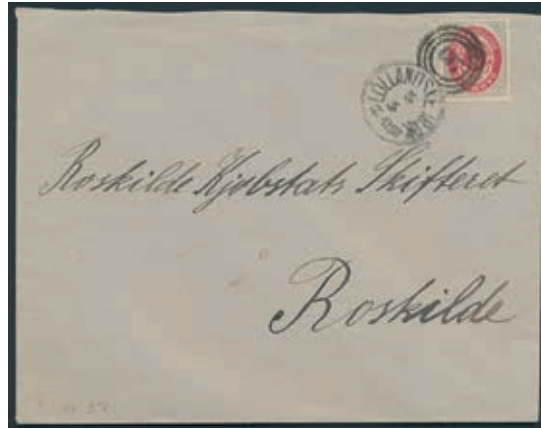 LOLLANDSKE
Roskilde Kjøbstats Skifteret
Roskilde